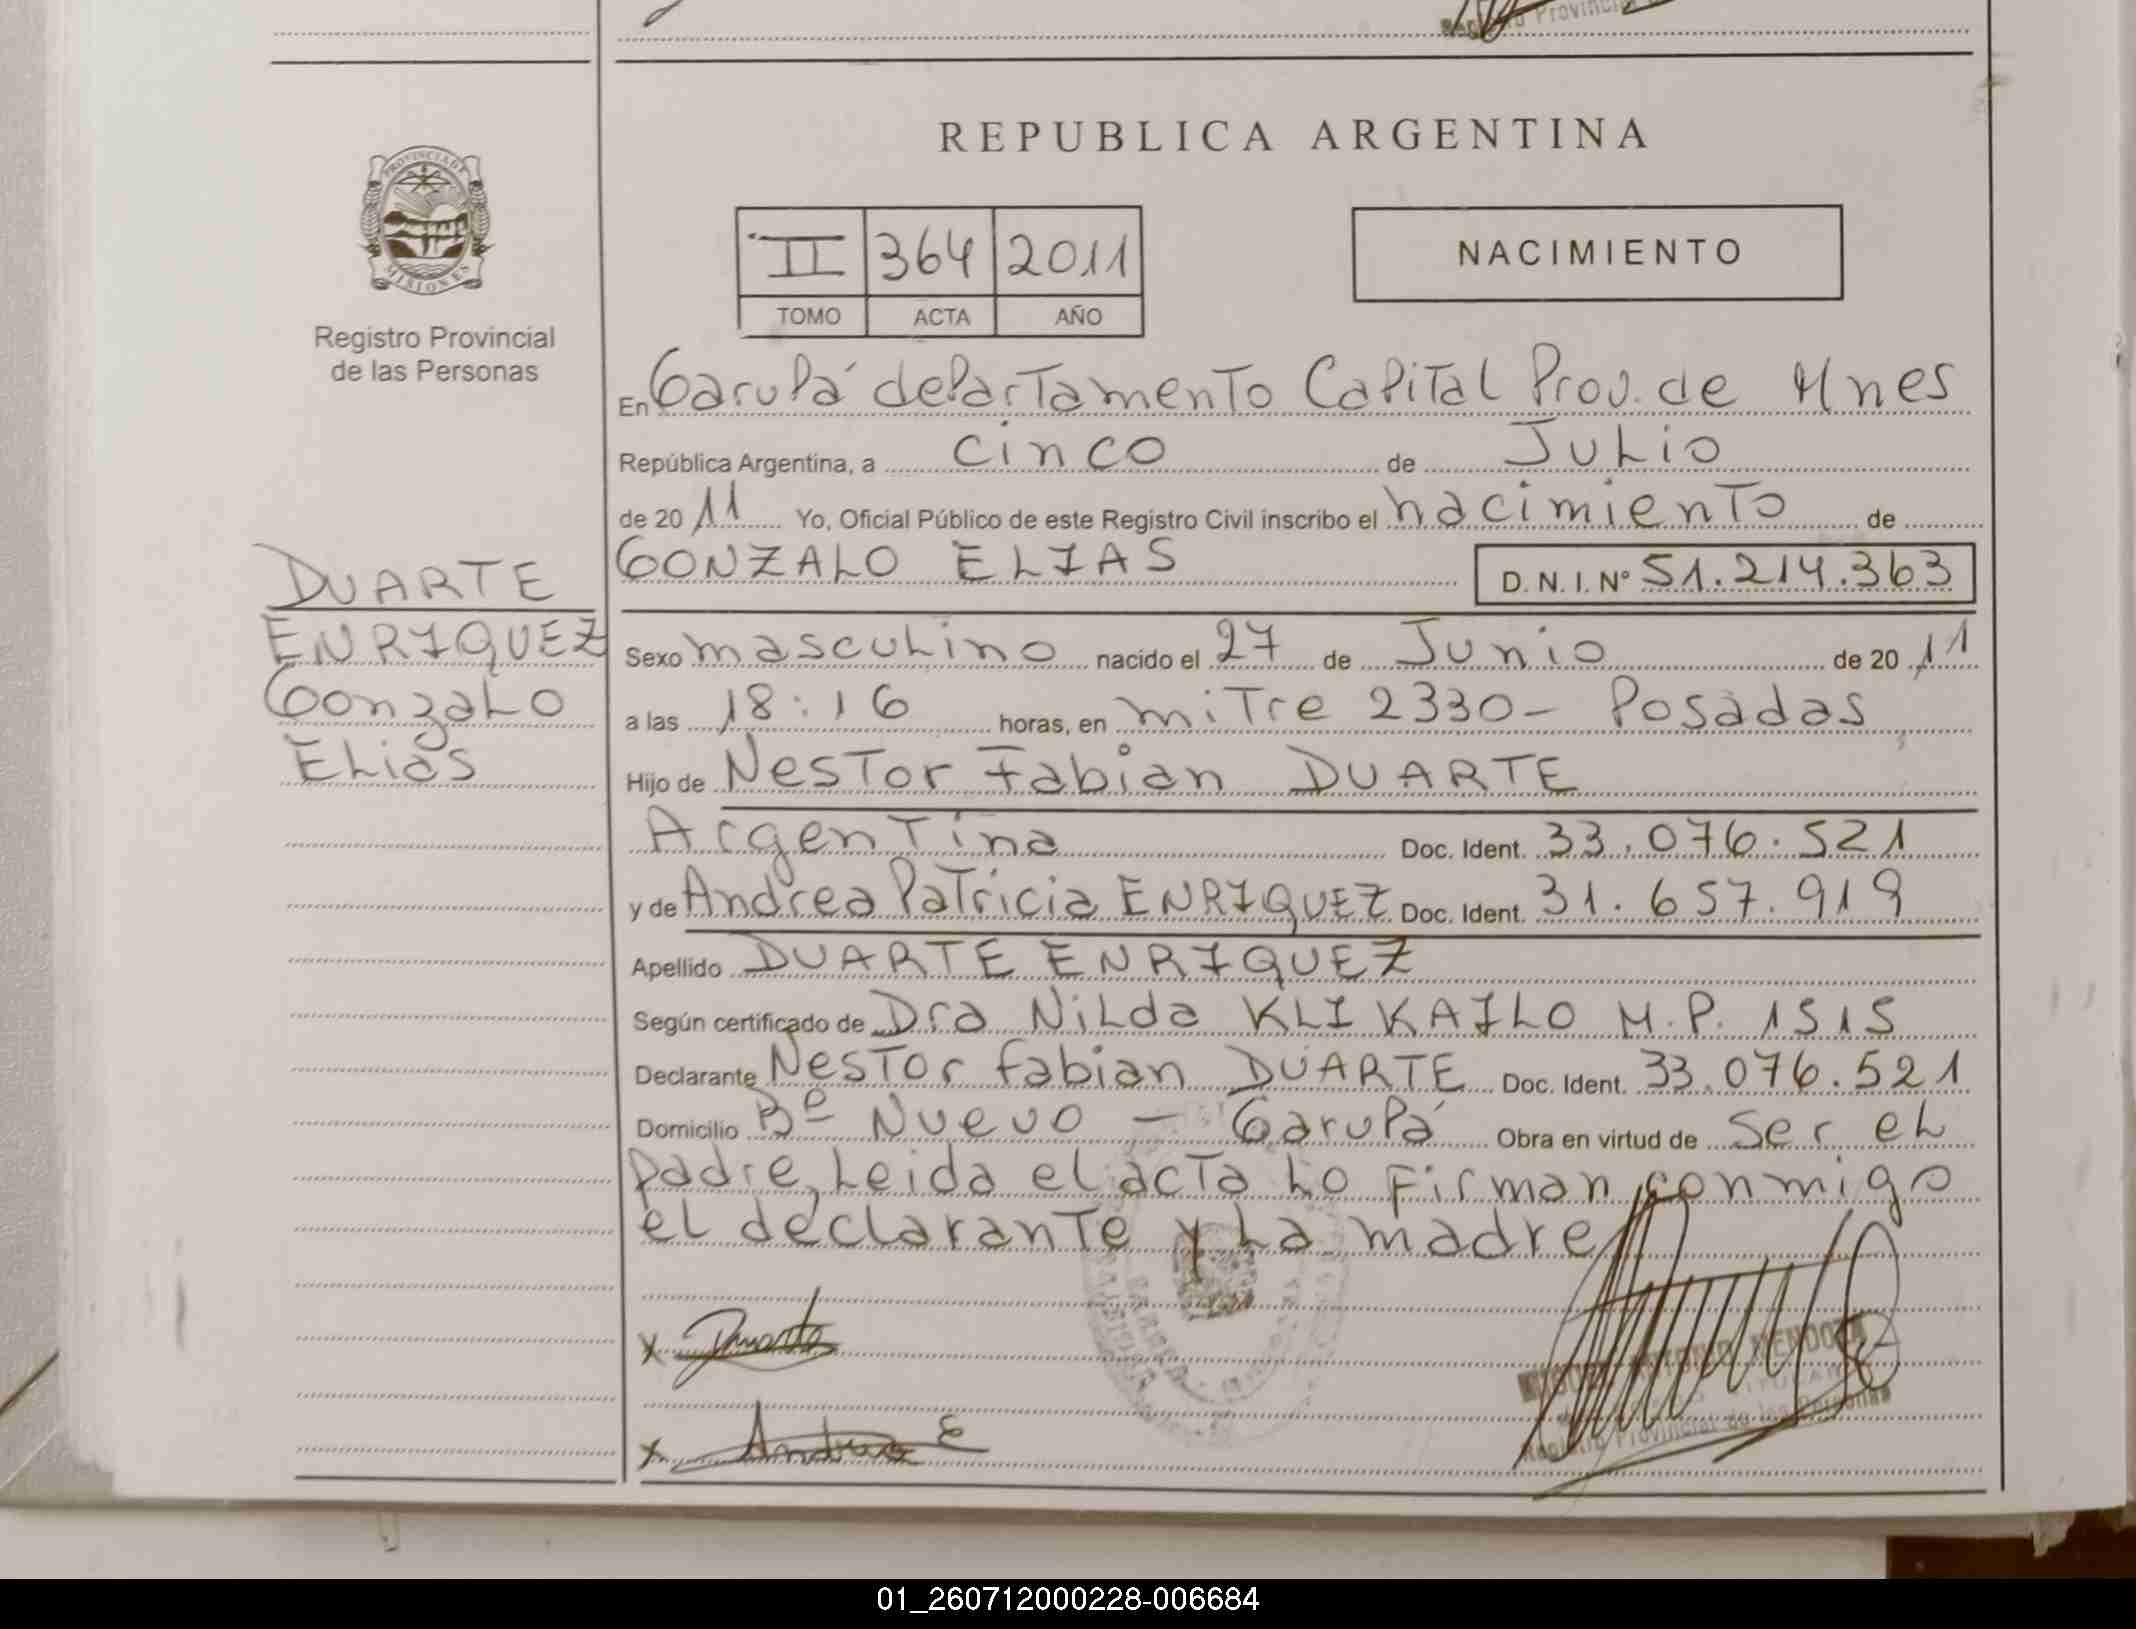 Registro Provincial
REPUBLICA ARGENTINA
PROVINCIA DE
MISIONES
Registro Provincial
de las Personas
II 364 2011
TOMO ACTA AÑO
NACIMIENTO
En Garupá departamento Capital Prov. de Mnes
República Argentina, a cinco de Julio
de 2011 Yo, Oficial Público de este Registro Civil inscribo el nacimiento de
GONZALO ELIAS D. N. I. Nº 51.214.363
DUARTE
ENRIQUEZ
Gonzalo
Elias
Sexo masculino nacido el 27 de Junio de 2011
a las 18:16 horas, en mitre 2330 - Posadas
Hijo de Nestor Fabian DUARTE
Argentina Doc. Ident. 33.076.521
y de Andrea Patricia ENRIQUEZ Doc. Ident. 31.657.919
Apellido DUARTE ENRIQUEZ
Según certificado de Dra Nilda KLIKAILO M.P. 1515
Declarante Nestor fabian DUARTE Doc. Ident. 33.076.521
Domicilio Bº Nuevo - Garupá Obra en virtud de ser el
padre, Leida el acta lo firman conmigo
el declarante y La madre
x Duarte
x Andrea E
ANTONIO MENDOZA
Registro Provincial de las Personas
01_260712000228-006684